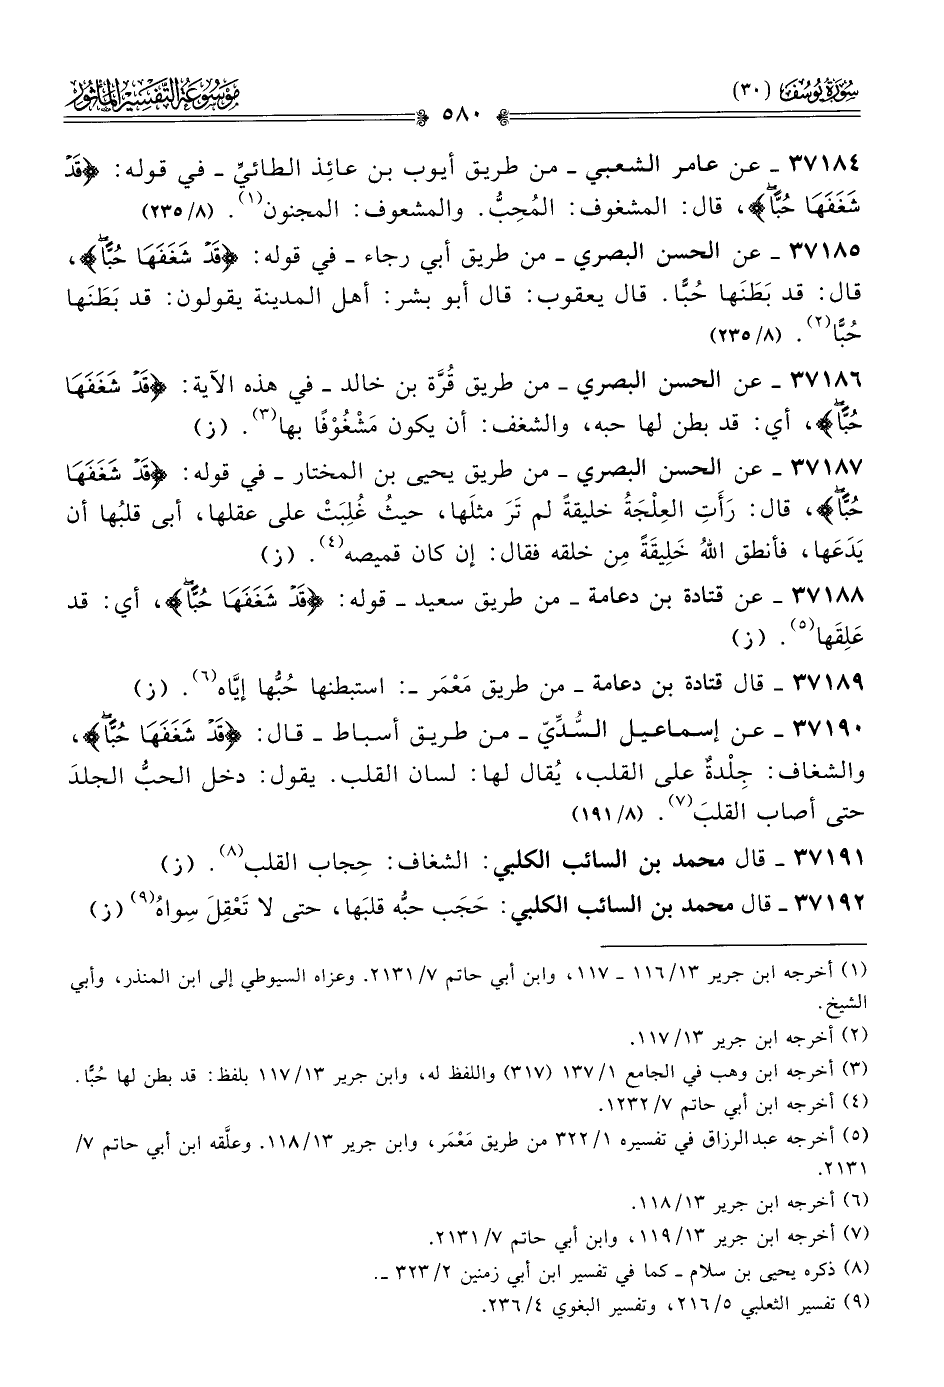 سُورَةُ يُوسُفَ (٣٠)
مَوْسُوعَةُ التَّفْسِيرِ المَأْثُورِ
٥٨٠
٣٧١٨٤ ـ عن عامر الشعبي ـ من طريق أيوب بن عائذ الطائيِّ ـ في قوله: ﴿قَدْ
شَغَفَهَا حُبًّا﴾، قال: المشغوف: المُحِبُّ. والمشعوف: المجنون(١). (٨/ ٢٣٥)
٣٧١٨٥ ـ عن الحسن البصري ـ من طريق أبي رجاء ـ في قوله: ﴿قَدْ شَغَفَهَا حُبًّا﴾،
قال: قد بَطَنَها حُبًّا. قال يعقوب: قال أبو بشر: أهل المدينة يقولون: قد بَطَنَها
حُبًّا(٢). (٨/ ٢٣٥)
٣٧١٨٦ ـ عن الحسن البصري ـ من طريق قُرَّة بن خالد ـ في هذه الآية: ﴿قَدْ شَغَفَهَا
حُبًّا﴾، أي: قد بطن لها حبه، والشغف: أن يكون مَشْغُوْفًا بها(٣). (ز)
٣٧١٨٧ ـ عن الحسن البصري ـ من طريق يحيى بن المختار ـ في قوله: ﴿قَدْ شَغَفَهَا
حُبًّا﴾، قال: رَأَتِ العِلْجَةُ خليقةً لم تَرَ مثلَها، حيثُ غُلِبَتْ على عقلها، أبى قلبُها أن
يَدَعَها، فأنطق اللهُ خَلِيقَةً مِن خلقه فقال: إن كان قميصه(٤). (ز)
٣٧١٨٨ ـ عن قتادة بن دعامة ـ من طريق سعيد ـ قوله: ﴿قَدْ شَغَفَهَا حُبًّا﴾، أي: قد
عَلِقَها(٥). (ز)
٣٧١٨٩ ـ قال قتادة بن دعامة ـ من طريق مَعْمَر ـ: استبطنها حُبُّها إيَّاه(٦). (ز)
٣٧١٩٠ ـ عـن إسـماعيـل السُّـدِّيّ ـ مـن طـريـق أسـباط ـ قـال: ﴿قَدْ شَغَفَهَا حُبًّا﴾،
والشغاف: جِلْدةٌ على القلب، يُقال لها: لسان القلب. يقول: دخل الحبُّ الجلدَ
حتى أصاب القلبَ(٧). (٨/ ١٩١)
٣٧١٩١ ـ قال محمد بن السائب الكلبي: الشغاف: حِجاب القلب(٨). (ز)
٣٧١٩٢ ـ قال محمد بن السائب الكلبي: حَجَب حبُّه قلبَها، حتى لا تَعْقِلَ سِواهُ(٩) (ز)
(١) أخرجه ابن جرير ١٣/ ١١٦ ـ ١١٧، وابن أبي حاتم ٧/ ٢١٣١. وعزاه السيوطي إلى ابن المنذر، وأبي
الشيخ.
(٢) أخرجه ابن جرير ١٣/ ١١٧.
(٣) أخرجه ابن وهب في الجامع ١/ ١٣٧ (٣١٧) واللفظ له، وابن جرير ١٣/ ١١٧ بلفظ: قد بطن لها حُبًّا.
(٤) أخرجه ابن أبي حاتم ٧/ ١٢٣٢.
(٥) أخرجه عبدالرزاق في تفسيره ١/ ٣٢٢ من طريق مَعْمَر، وابن جرير ١٣/ ١١٨. وعلَّقه ابن أبي حاتم ٧/
٢١٣١.
(٦) أخرجه ابن جرير ١٣/ ١١٨.
(٧) أخرجه ابن جرير ١٣/ ١١٩، وابن أبي حاتم ٧/ ٢١٣١.
(٨) ذكره يحيى بن سلام ـ كما في تفسير ابن أبي زمنين ٢/ ٣٢٣ ـ.
(٩) تفسير الثعلبي ٥/ ٢١٦، وتفسير البغوي ٤/ ٢٣٦.